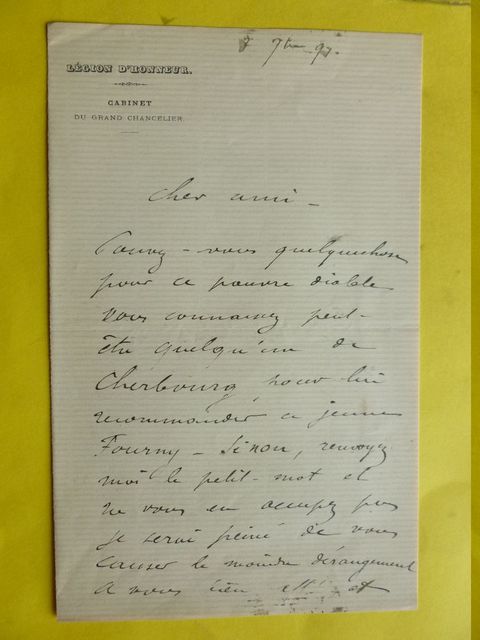 7bre 97.
LÉGION D'HONNEUR.
CABINET
DU GRAND CHANCELIER
Cher ami –
Pouvez-vous quelquechose
pour ce pauvre diable
Vous connaissez peut-
être quelqu'un de
Cherbourg pour lui
recommander ce jeune
Fourny – Sinon, renvoyez
moi le petit-mot et
ne vous en occupez pas
je serai peiné de vous
causer le moindre dérangement
a vous bien et